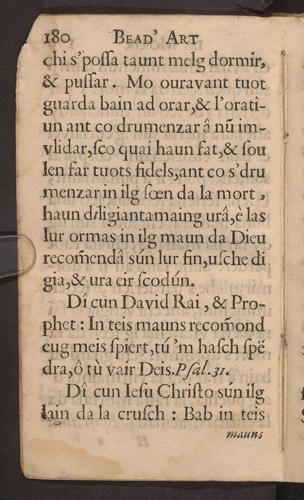 180 BEAD' ART
chi s'possa taunt melg dormir,
& pussar. Mo ouravant tuot
guarda bain ad orar,& l'orati-
un ant co drumenzar â nũ im-
vlidar,sco quai haun fat,& sou
len far tuots fidels,ant co s'dru
menzar in ilg sœn da la mort,
haun diligiantamaing urâ,é las
lur ormas in ilg maun da Dieu
recom̃endâ sün lur fin,usche di
gia,& ura eir scodün.
Dî cun David Rai, & Pro-
phet: In teis mauns recom̃ond
eug meis spiert,tú 'm hasch spẽ
dra,ô tù vair Deis.Psal.31.
Dî cun Iesu Christo sün ilg
lain da la crusch: Bab in teis
mauns